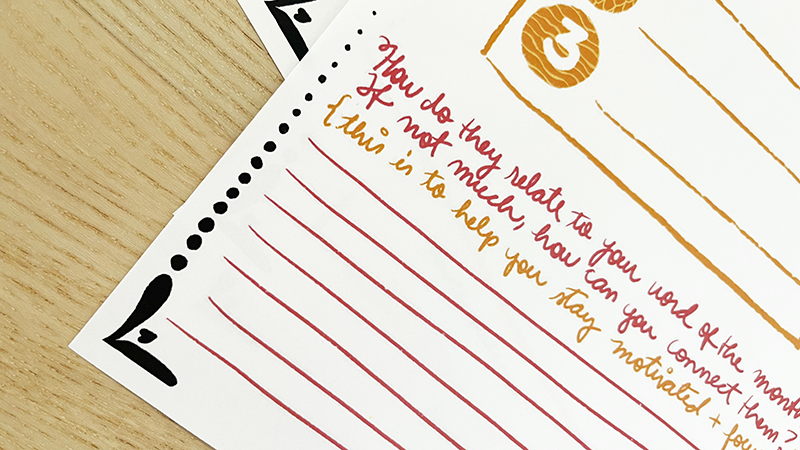 3
How do they relate to your word of the month
If not much, how can you connect them?
{this is to help you stay motivated +